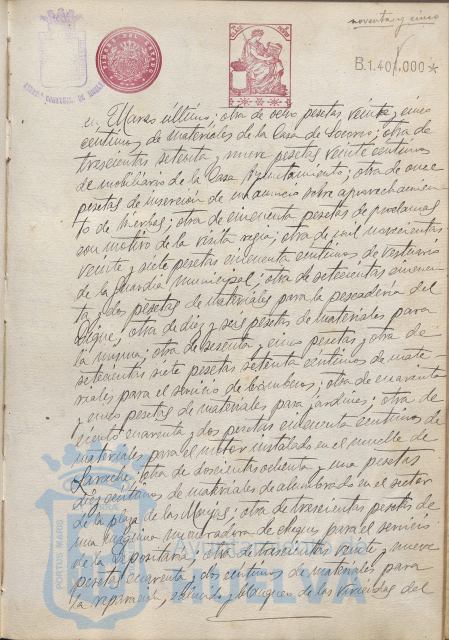 noventa y cinco
TIMBRE DEL ESTADO
B.1.401.000*
en Marzo último; otra de ocho pesetas veinte y cinco
céntimos de materiales de la Casa de Socorro; otra de
trescientas setenta y nueve pesetas veinte céntimos
de mobiliario de la Casa Ayuntamiento; otra de once
pesetas de inserción de un anuncio sobre aprovechamien
to de hierbas; otra de cincuenta pesetas de proclamas
con motivo de la visita regia; otra de mil novecientas
veinte y siete pesetas cincuenta céntimos de vestuario
de la Guardia Municipal; otra de setecientas cincuen
ta y dos pesetas de materiales para la pescadería del
Dique, otra de diez y seis pesetas de materiales para
la misma; otra de sesenta y cinco pesetas y otra de
setecientas siete pesetas setenta céntimos de mate-
riales para el servicio de bomberos; otra de cuarenta
y cinco pesetas de materiales para jardines; otra de
ciento cuarenta y dos pesetas cincuenta céntimos de
materiales para el motor instalado en el muelle de
Larache, otra de doscientas ochenta y una pesetas
diez céntimos de materiales de alumbrado en el sector
de la plaza de las Monjas; otra de trescientas pesetas de
una máquina de cheques para el servicio
de la Depositaría; otra de trescientas veinte y nueve
pesetas cuarenta y dos céntimos de materiales para
la y blanqueo de las viviendas del
PORTUS MARIS
HUELVA